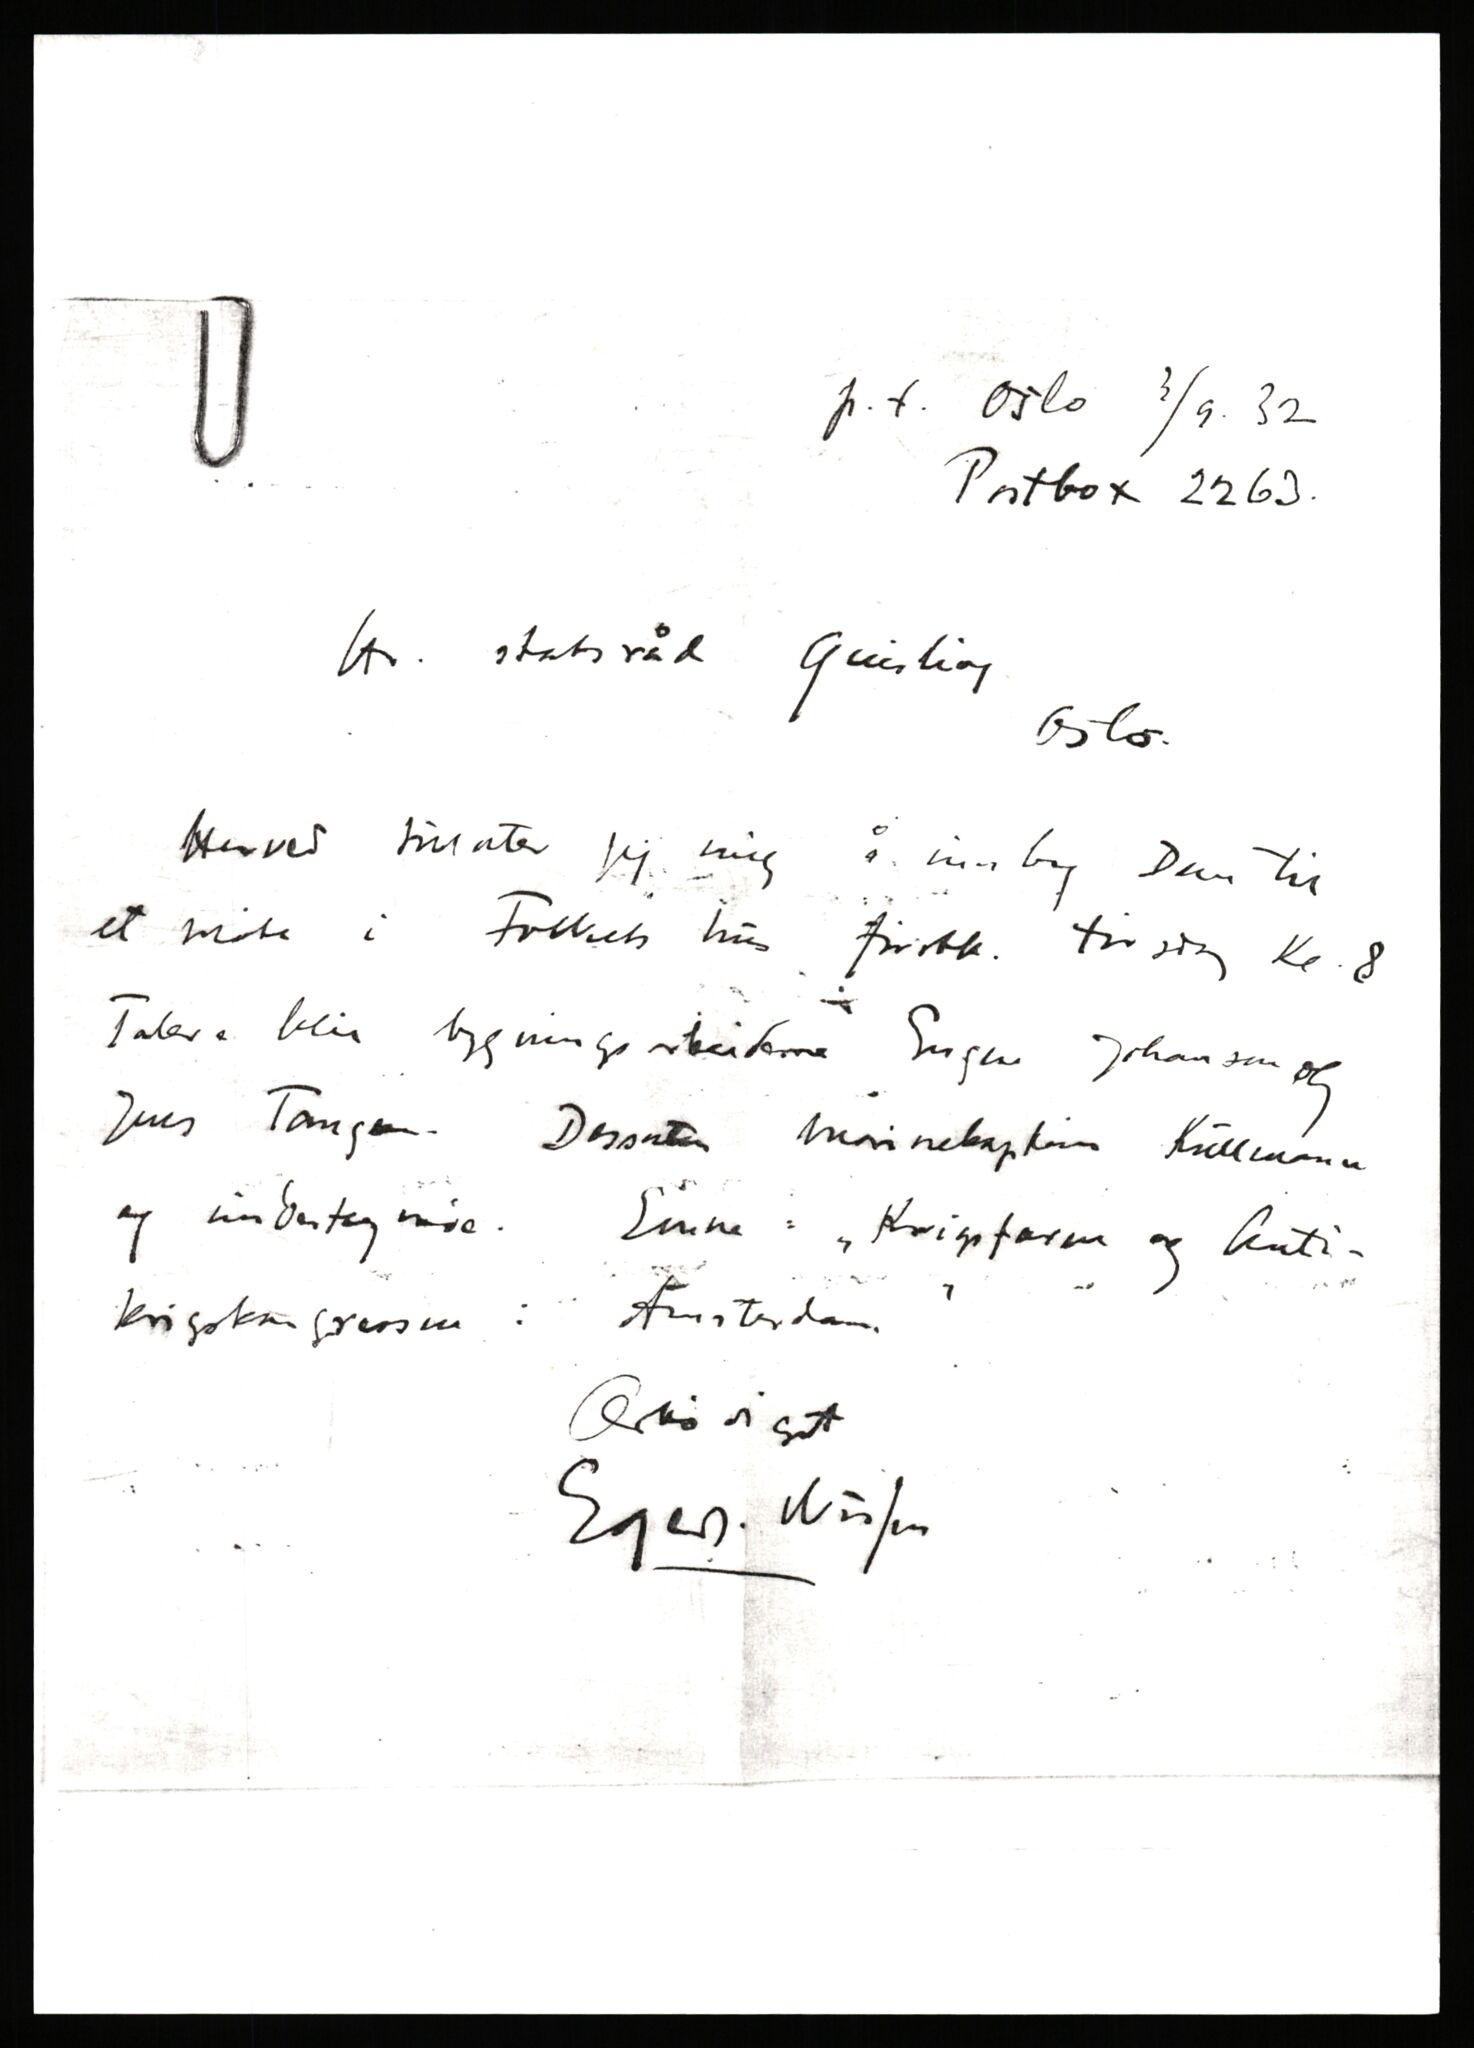 p.t. Oslo 3/9. 32
Postbox 2263.
Hr. statsråd Quisling
Oslo.
Herved tillater jeg mig å innby Dem til
et møte i Folkets hus førstk. tirsdag kl. 8
Talere blir bygningsarbeiderne Eugen Johansen og
Jens Tangen. Dessuten marinekaptein Kullmann
og undertegnede. Emne: „Krigsfaren og Anti-
krigskongressen i Amsterdam."
Ærbødigst
Egede-Nissen